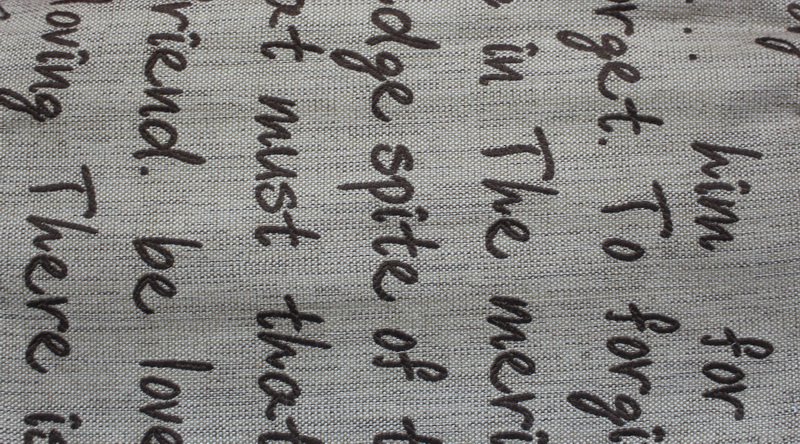 him for
rget. To forgi
in The meri
dge spite of t
at must that
riend. be love
oving There is